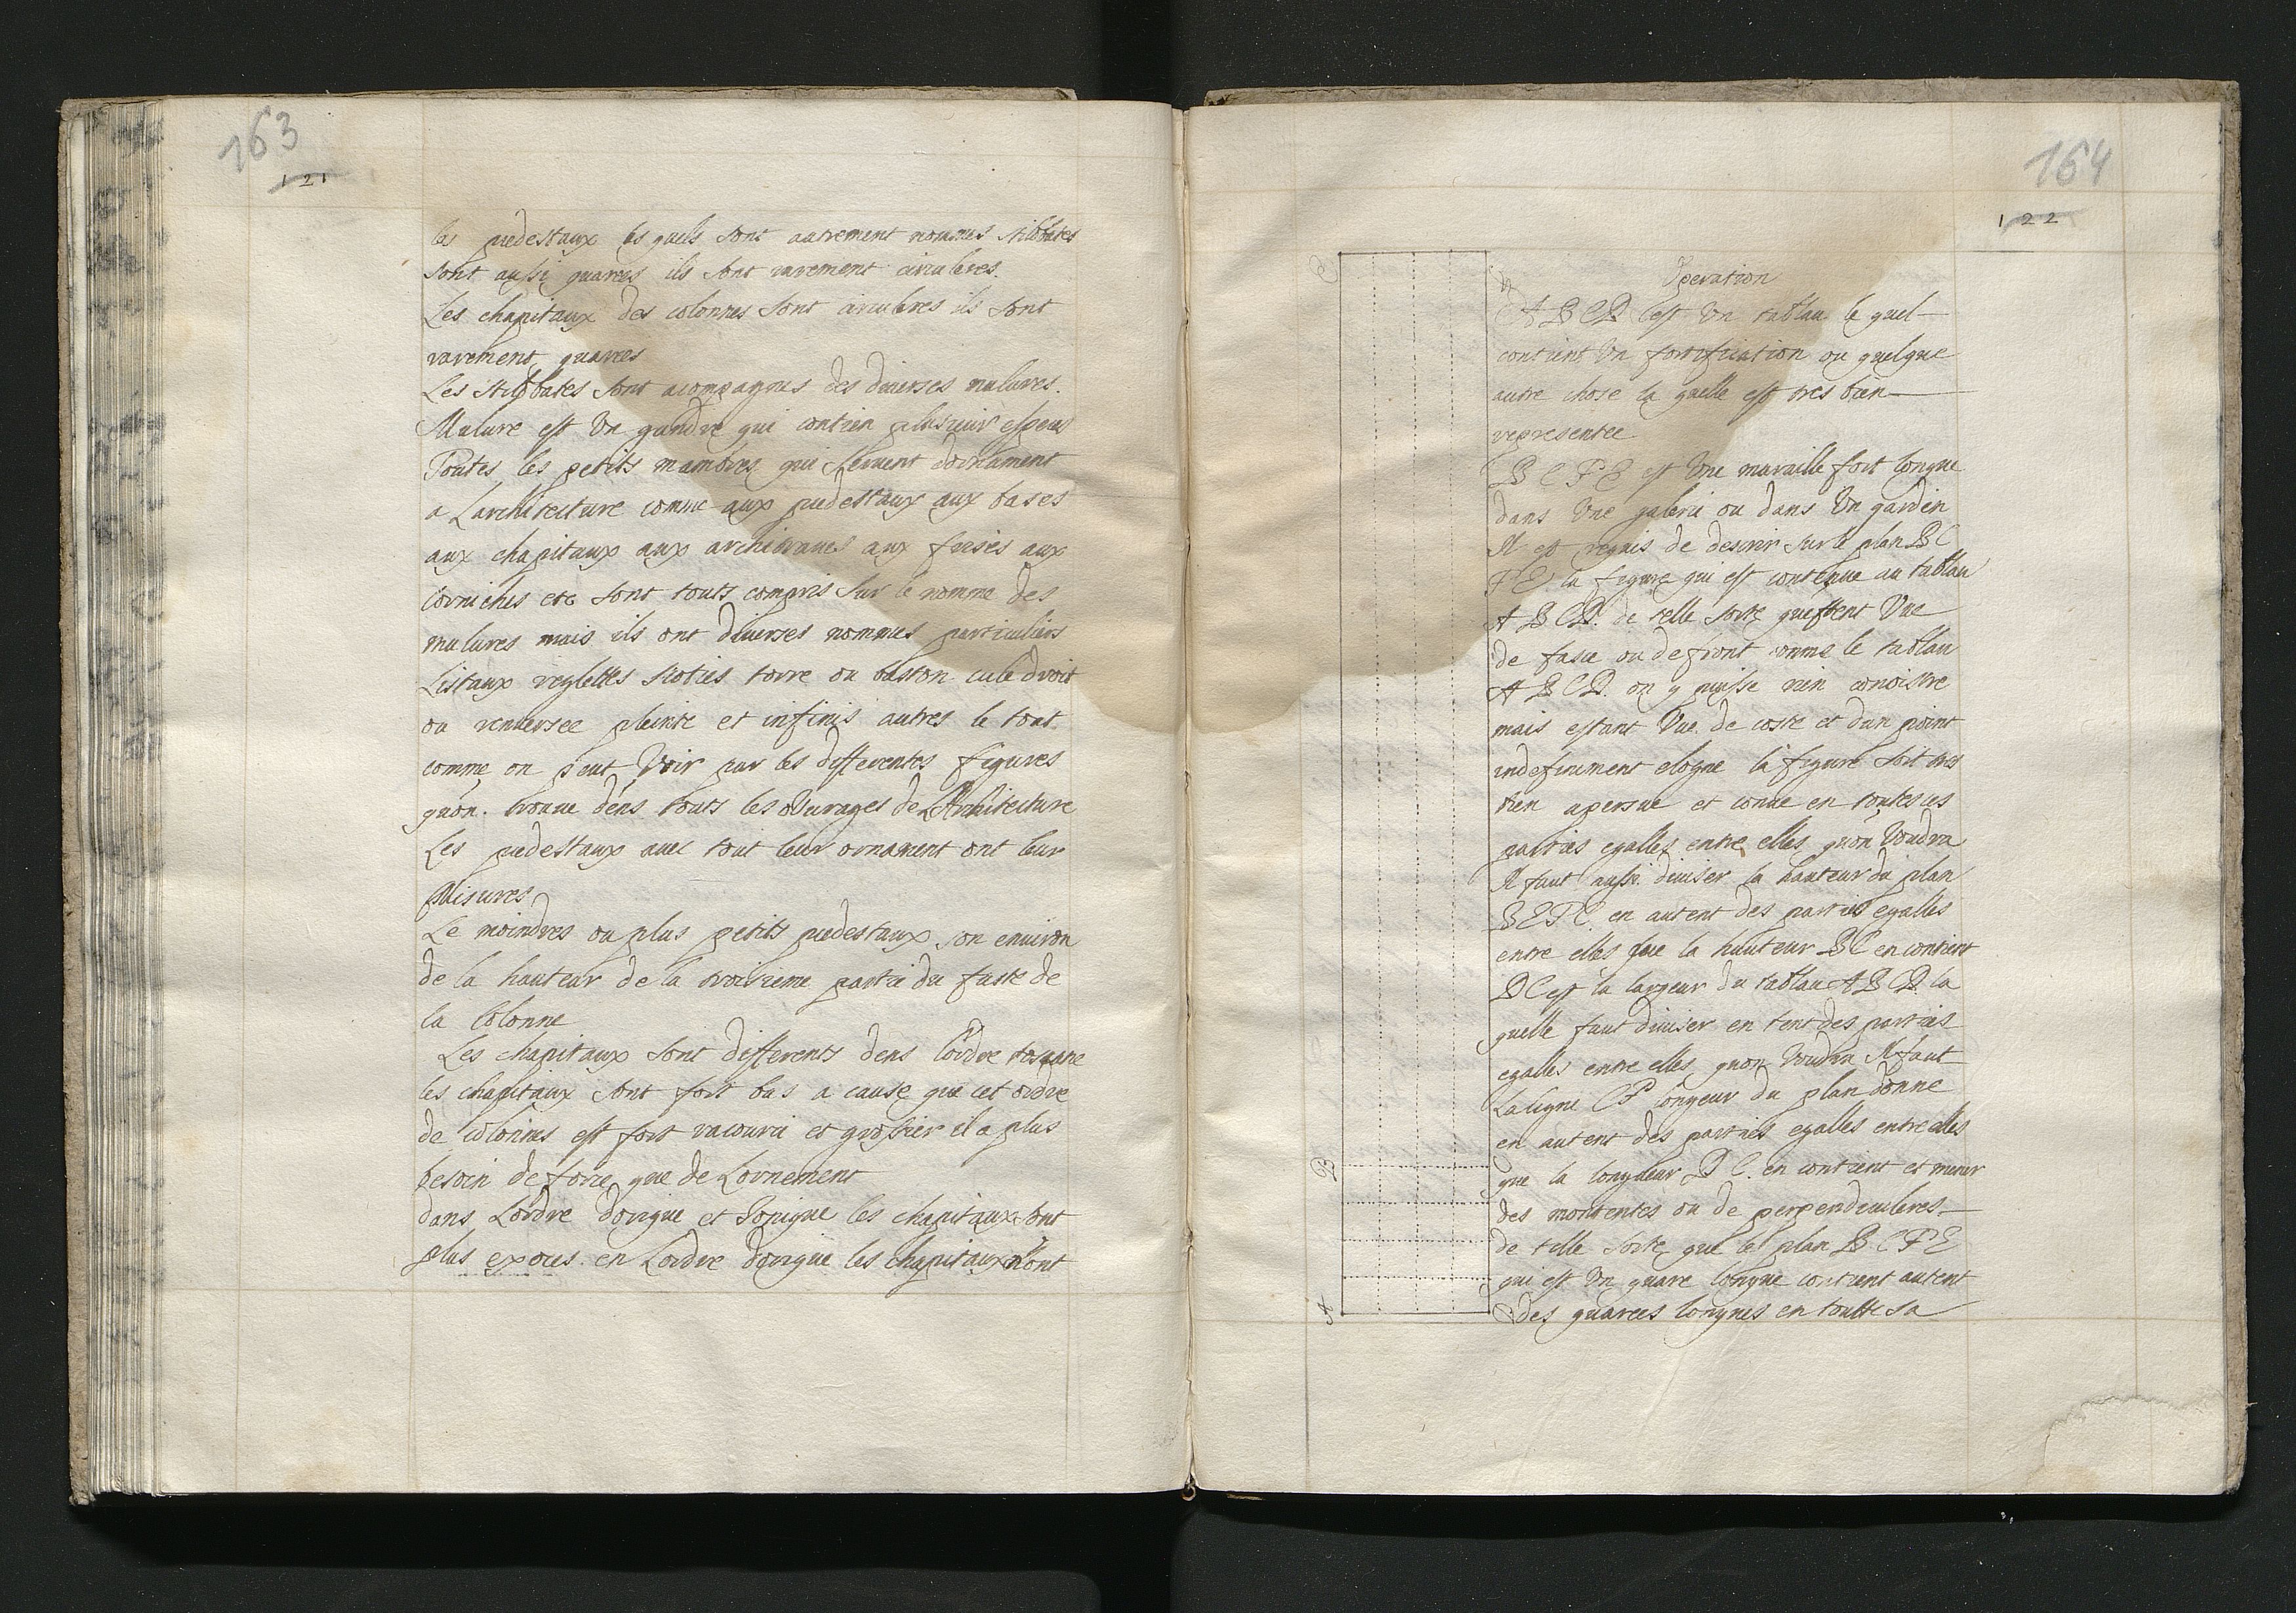 163
121
les piedestaux les quels sont autrement nommes stilobates
sont aussi quarees ils sont rarement circuleres.
Les chapitaux des colonnes sont circuleres ils sont
rarement quarees
Les stilobates sont acompagnes des diuerses mulures.
Mulure est Un gandre qui contien plusieur especes
Toutes les petits mambres qui seruent dornament
a Larchitecture comme aux piedestaux aux bases
aux chapitaux aux architraues aux frises aux
Corniches etc sont touts compris sur le nomme des
mulures mais ils ont diuerses nommes particuliers
Listaux reglettes scoties torre ou baston cule droit
ou renuersee pleinte et infinis autres le tout
comme on peut Voir par les differentes figures
quon. trouue déns touts les oVurages de LArchitecture
Les piedestaux auec tout leur ornament ont leur
Misures
Le moindres ou plus petits piedestaux son enuiron
de la hauteur de la troisieme partie du fuste de
la Colonne
Les chapitaux sont differents dens Lordre toscane
les chapitaux sont fort bas a cause que cet ordre
de colonnes est fort racourci et grossier il a plus
besoin de force que de Lornement
dans Lordre dorique et Ionique les chapitaux sont
plus en Lordre dorique les chapitaux sont
164
122
C
D
Operation
A B C D Cest Un tablau le quel
contient Un fortification ou quelque
autre chose la quelle est tres bien
representee
B C F E est Une muraille fort longue
dans Une galerie ou dans Un gardin
Il est requis de descrir sur le plan B C
F E la figure qui est contenue au tablau
A B C D. de telle sorte questent Vue
de fasce ou de front comme le tablau
A B C D. on y puisse rien conoistre
mais estant Vue de coste et dun point
indefiniment elogne la figure soit tres
bien apersue et conue en toutes ces
parties egalles entre elles quon Voudra
Il faut aussi diuiser la hauteur du plan
B E F C. en autent des parties egalles
entre elles que la hauteur B C en contient
D C est la largeur du tablau A B C D. la
quelle faut diuiser en tent des parties
egalles entre elles quon Voudra Il faut
La ligne C F longeur du plan donne
en autent des parties egalles entre elles
B
que la longueur D C. en contient et mener
des montentes ou de perpendiculeres
de telle sorte que le plan B C F E
qui est Un quare longue contient autent
A
Des quarees longues en toutte sa